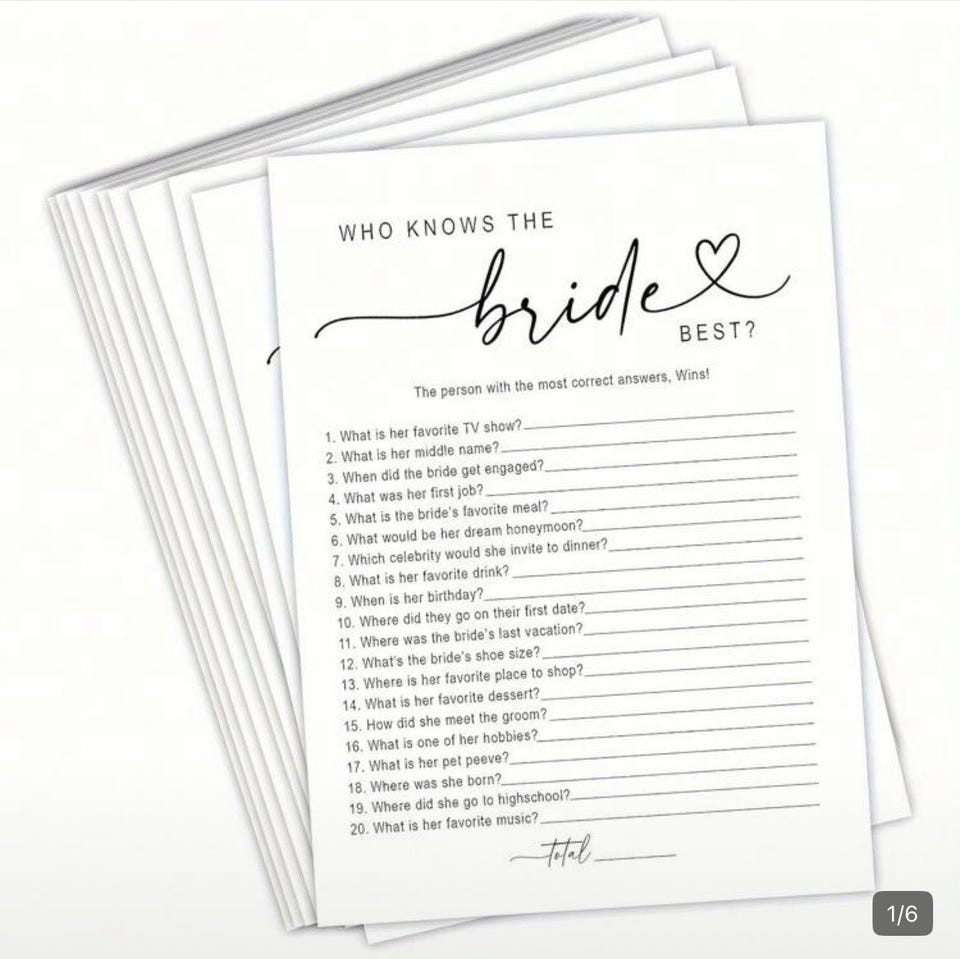 WHO KNOWS THE
bride
BEST?
The person with the most correct answers, Wins!
1. What is her favorite TV show?
2. What is her middle name?
3. When did the bride get engaged?
4. What was her first job?
5. What is the bride's favorite meal?
6. What would be her dream honeymoon?
7. Which celebrity would she invite to dinner?
8. What is her favorite drink?
9. When is her birthday?
10. Where did they go on their first date?
11. Where was the bride's last vacation?
12. What's the bride's shoe size?
13. Where is her favorite place to shop?
14. What is her favorite dessert?
15. How did she meet the groom?
16. What is one of her hobbies?
17. What is her pet peeve?
18. Where was she born?
19. Where did she go to highschool?
20. What is her favorite music?
total
1/6